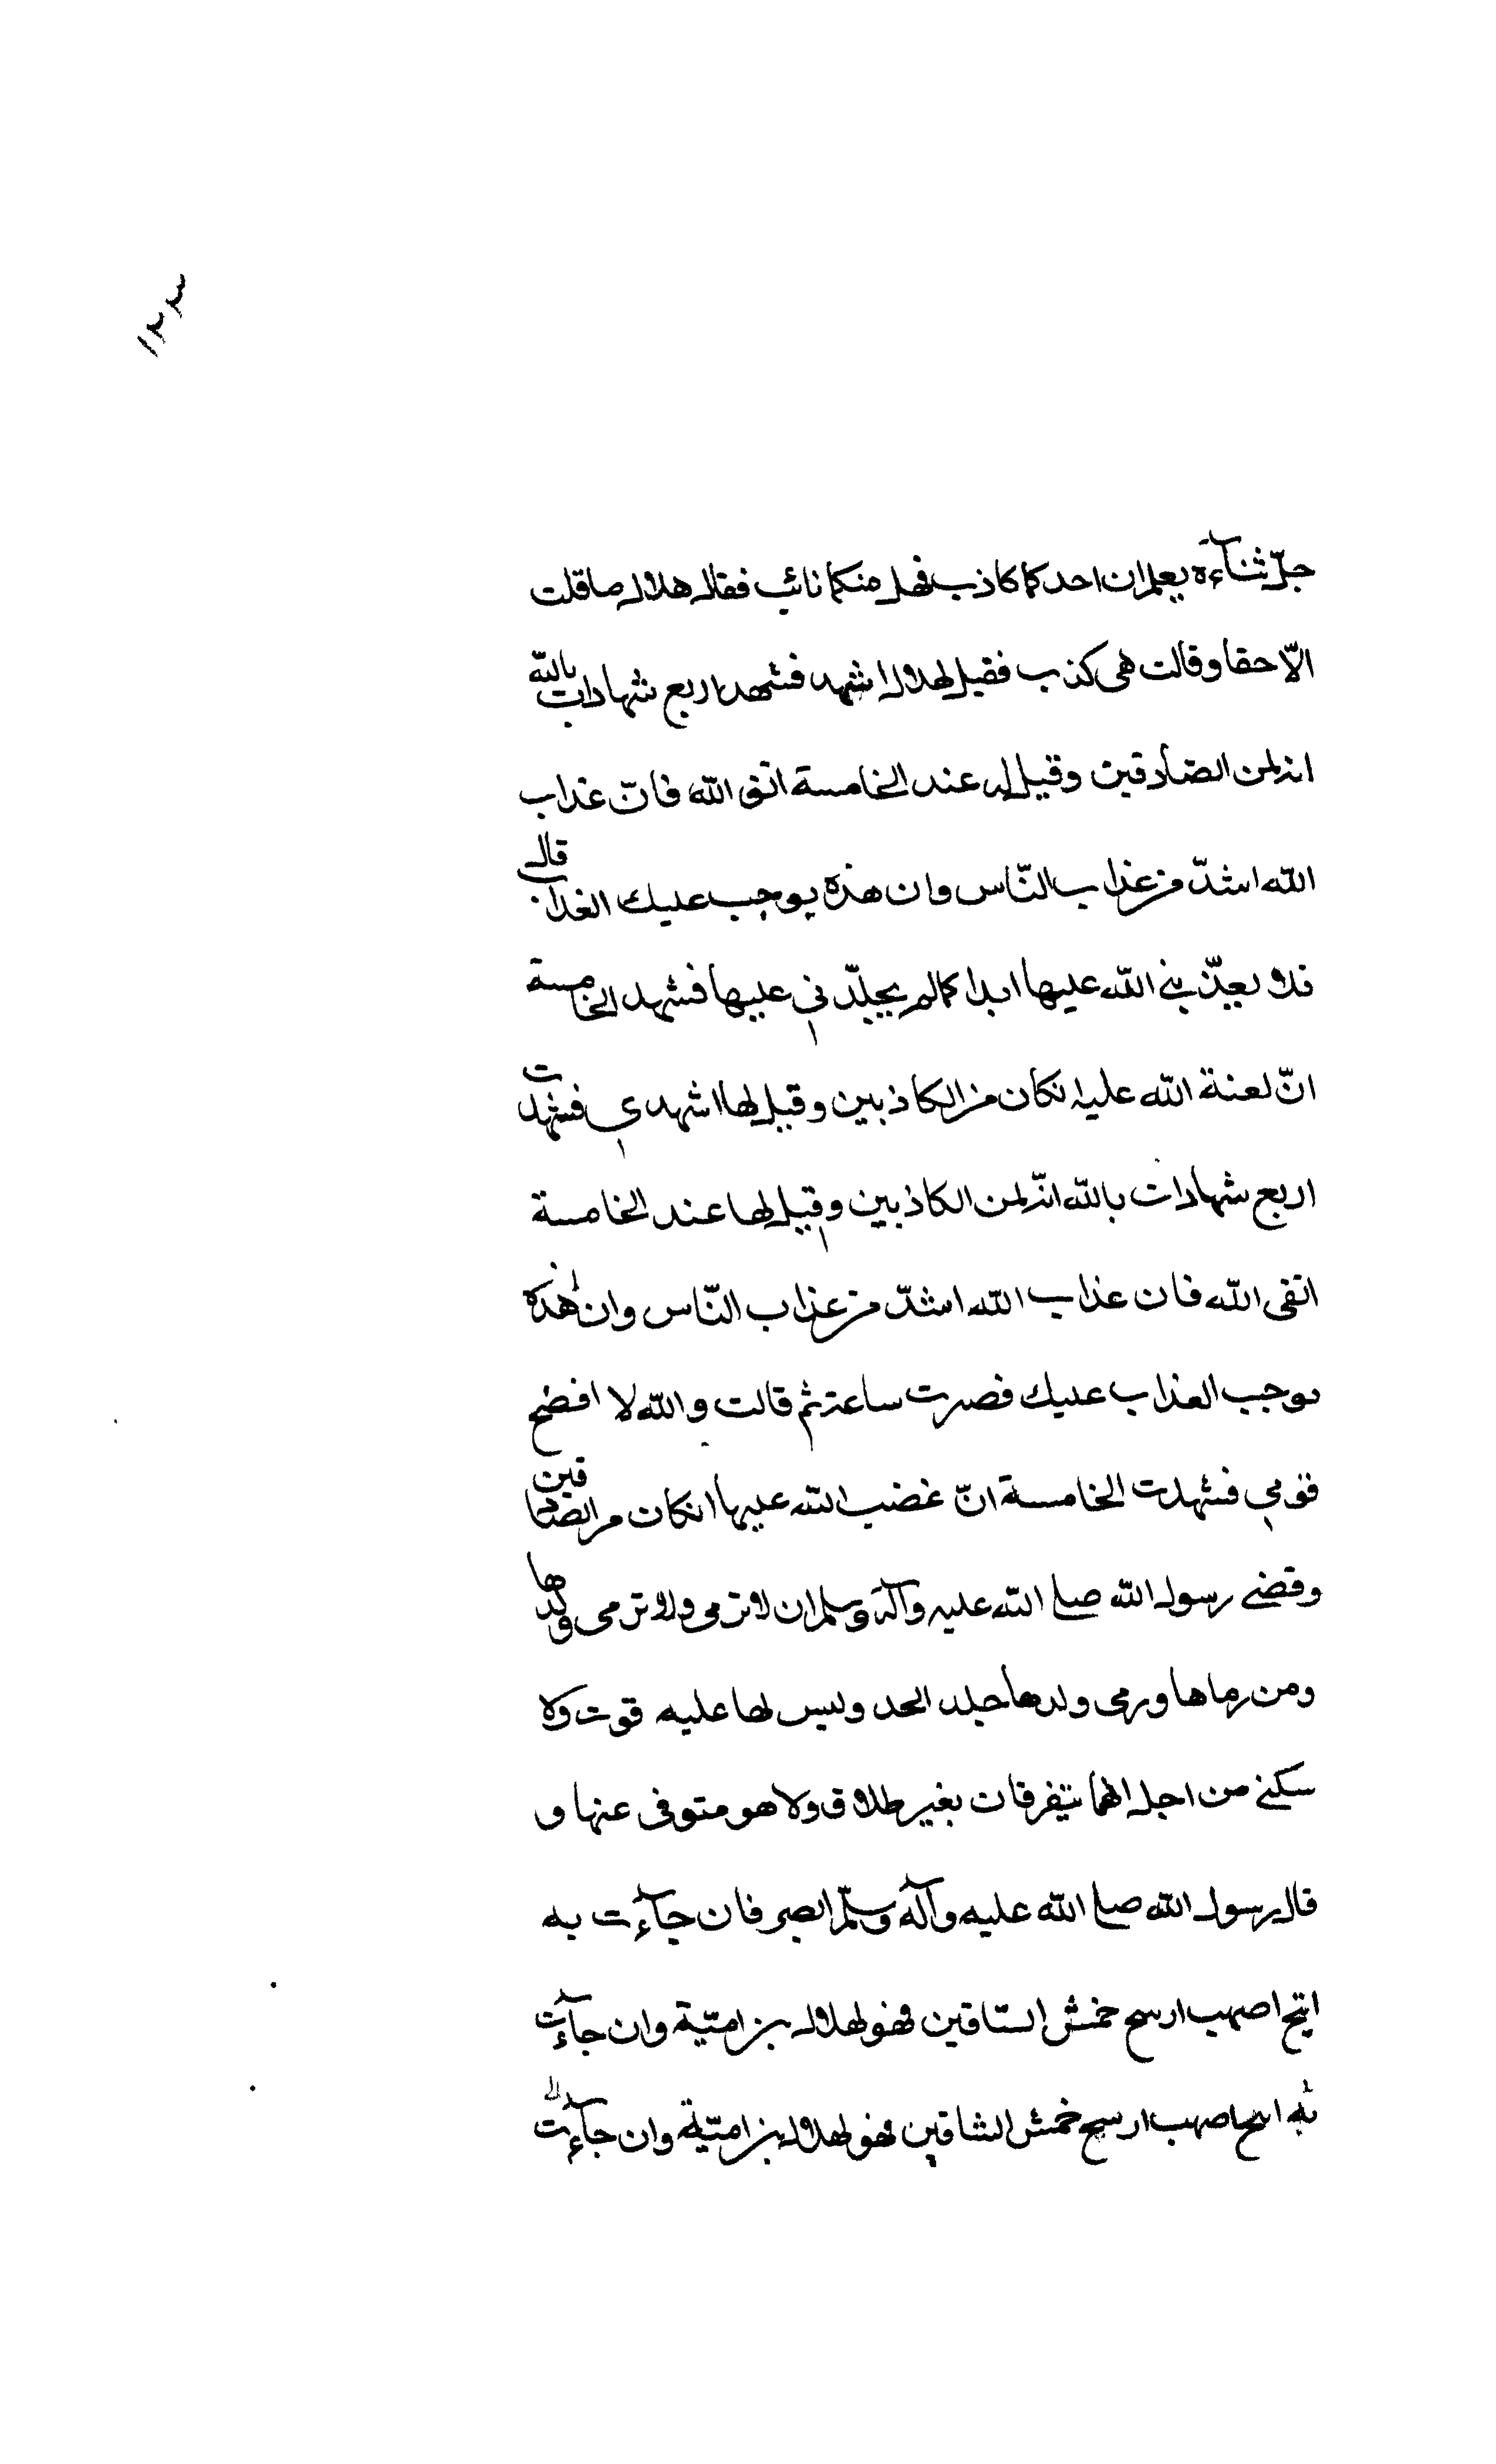 ١٢٣
جلّ ثناءه يعلم ان احدكما كاذب فهل منكما تائب فقال هلال ما قلت
الّا حقا وقالت هي كذب فقيل لهلال اشهد فشهد اربع شهادات بالله
انه لمن الصّادقين وقيل له عند الخامسة اتق الله فانّ عذاب
الله اشدّ من عذاب النّاس وان هذه يوجب عليك العذاب قال
فلا يعذّبني الله عليها ابدا كما لم يجلّدني عليها فشهد الخامسة
انّ لعنة الله عليه انكان من الكاذبين وقيل لها اشهدي فشهدت
اربع شهادات بالله انّه لمن الكاذبين وقيل لها عند الخامسة
اتقى الله فان عذاب الله اشدّ من عذاب النّاس وان هذه
يوجب العذاب عليك فصبرت ساعة ثم قالت والله لا افضح
قومي فشهدت الخامسة انّ غضب الله عليها انكان من الصّادقين
وقضى رسول الله صلى الله عليه وآله وسلم ان لا ترمى ولا ترمى ولدها
ومن رماها ورمى ولدها جلد الحد وليس لها عليه قوت ولا
سكنى من اجل انهما يتفرقان بغير طلاق ولا هو متوفى عنها و
قال رسول الله صلى الله عليه وآله وسلّم ابصر فان جآءت به
اثيج اصهب ارسح خمش السّاقين فهو لهلال بن اميّة وان جآءت
به اصهب ارسح خمش الساقين فهو لهلال بن اميّة وان جآءت